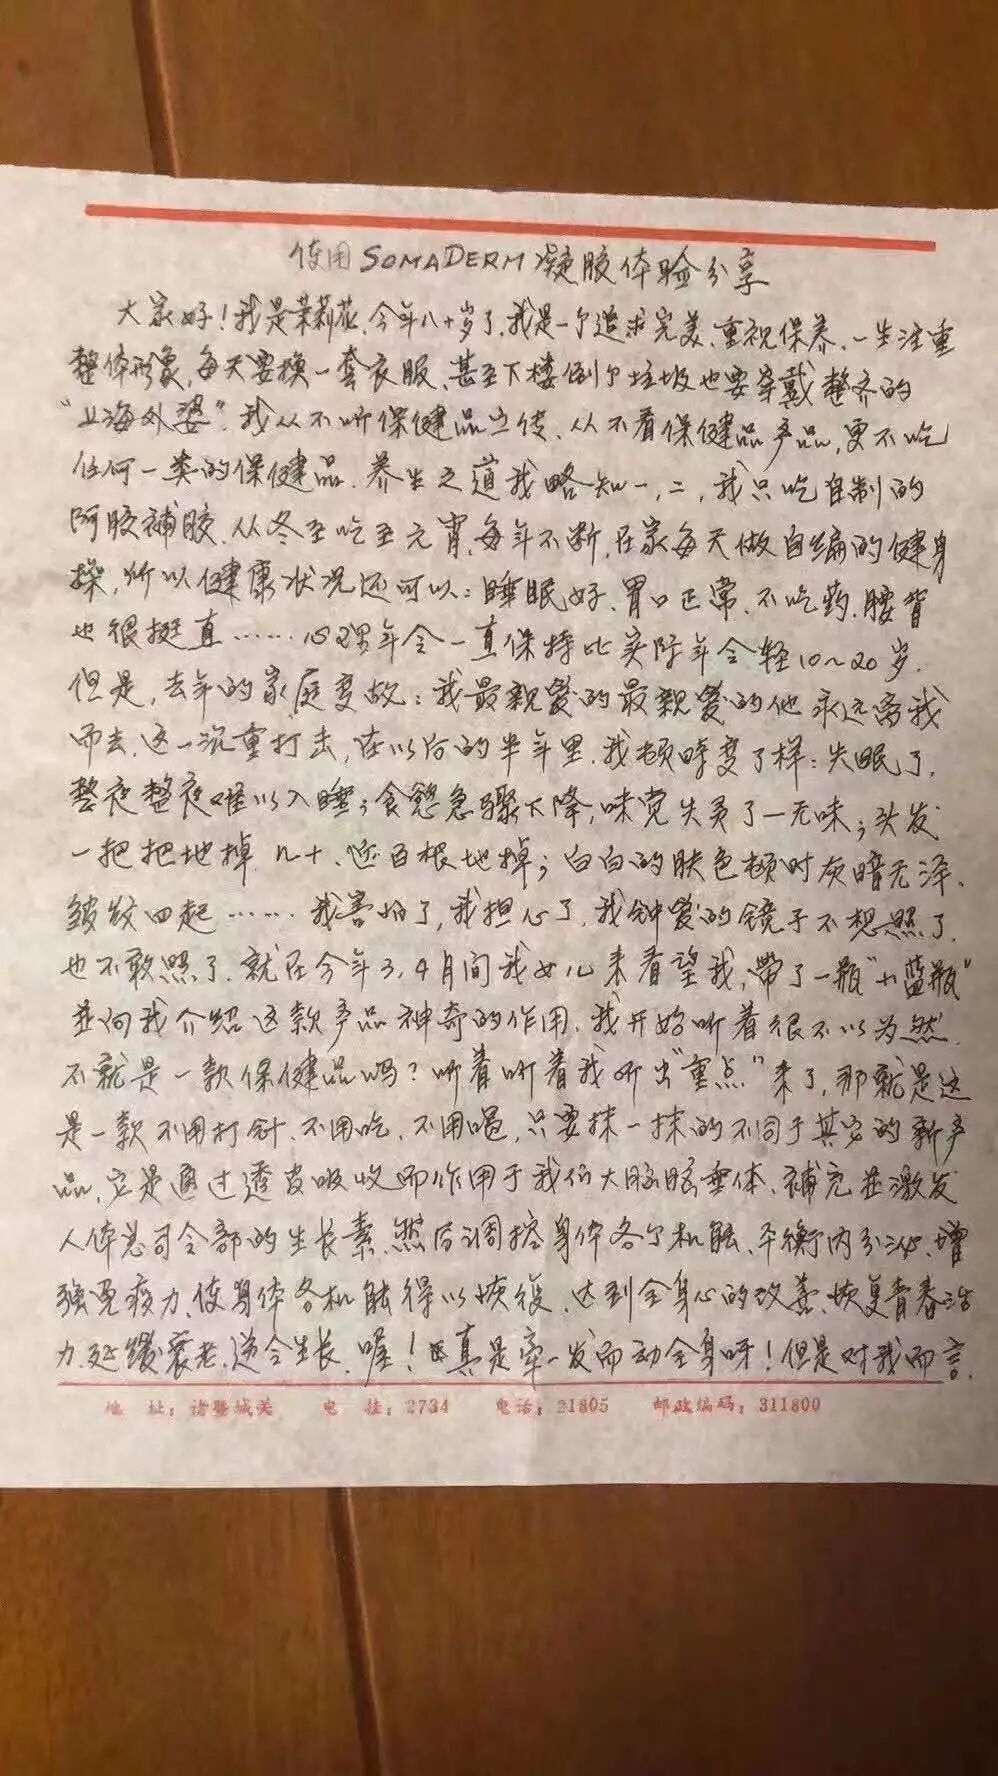 使用SOMADERM凝胶体验分享
大家好！我是茉莉花，今年八十岁了，我是一个追求完美、重视保养、一生注重
整体形象，每天要换一套衣服、甚至下楼倒个垃圾也要穿戴整齐的
“上海外婆”。我从不听保健品宣传、从不看保健品产品，更不吃
任何一类的保健品．养生之道我略知一，二，我只吃自制的
阿胶補胶．从冬至吃至元宵，每年不断，在家每天做自编的健身
操，所以健康状况还可以：睡眠好、胃口正常、不吃药、腰背
也很挺直……心理年令一直保持比实际年令轻10~20岁．
但是，去年的家庭变故：我最親爱的最親爱的他永远离我
而去．这一沉重打击，在以后的半年里．我顿時变了样：失眠了．
整夜整夜难以入睡；食慾急骤下降，味觉失灵了一无味；头发
一把把地掉 几十、近百根地掉；白白的肤色顿时灰暗无泽、
皱纹四起……我害怕了，我担心了，我钟爱的镜子不想照了，
也不敢照了．就在今年3、4月间我女儿来看望我，带了一瓶“小蓝瓶”
並向我介绍这款产品神奇的作用．我开始听着很不以为然．
不就是一款保健品吗？听着听着我听出“重点”来了，那就是这
是一款不用打针、不用吃、不用喝，只要抹一抹的不同于其它的新产
品，它是通过透皮吸收而作用于我们大脑脑垂体、補充並激发
人体总司令部的生长素，然后调控身体各个机能、平衡内分泌、增
强免疫力、使身体各机能得以恢復．达到全身心的改善、恢复青春活
力．延缓衰老，逆令生长．喔！真是牵一发而动全身呀！但是对我而言．
地 址：诸暨城关 电 挂：2734 电话：21805 邮政编码：311800